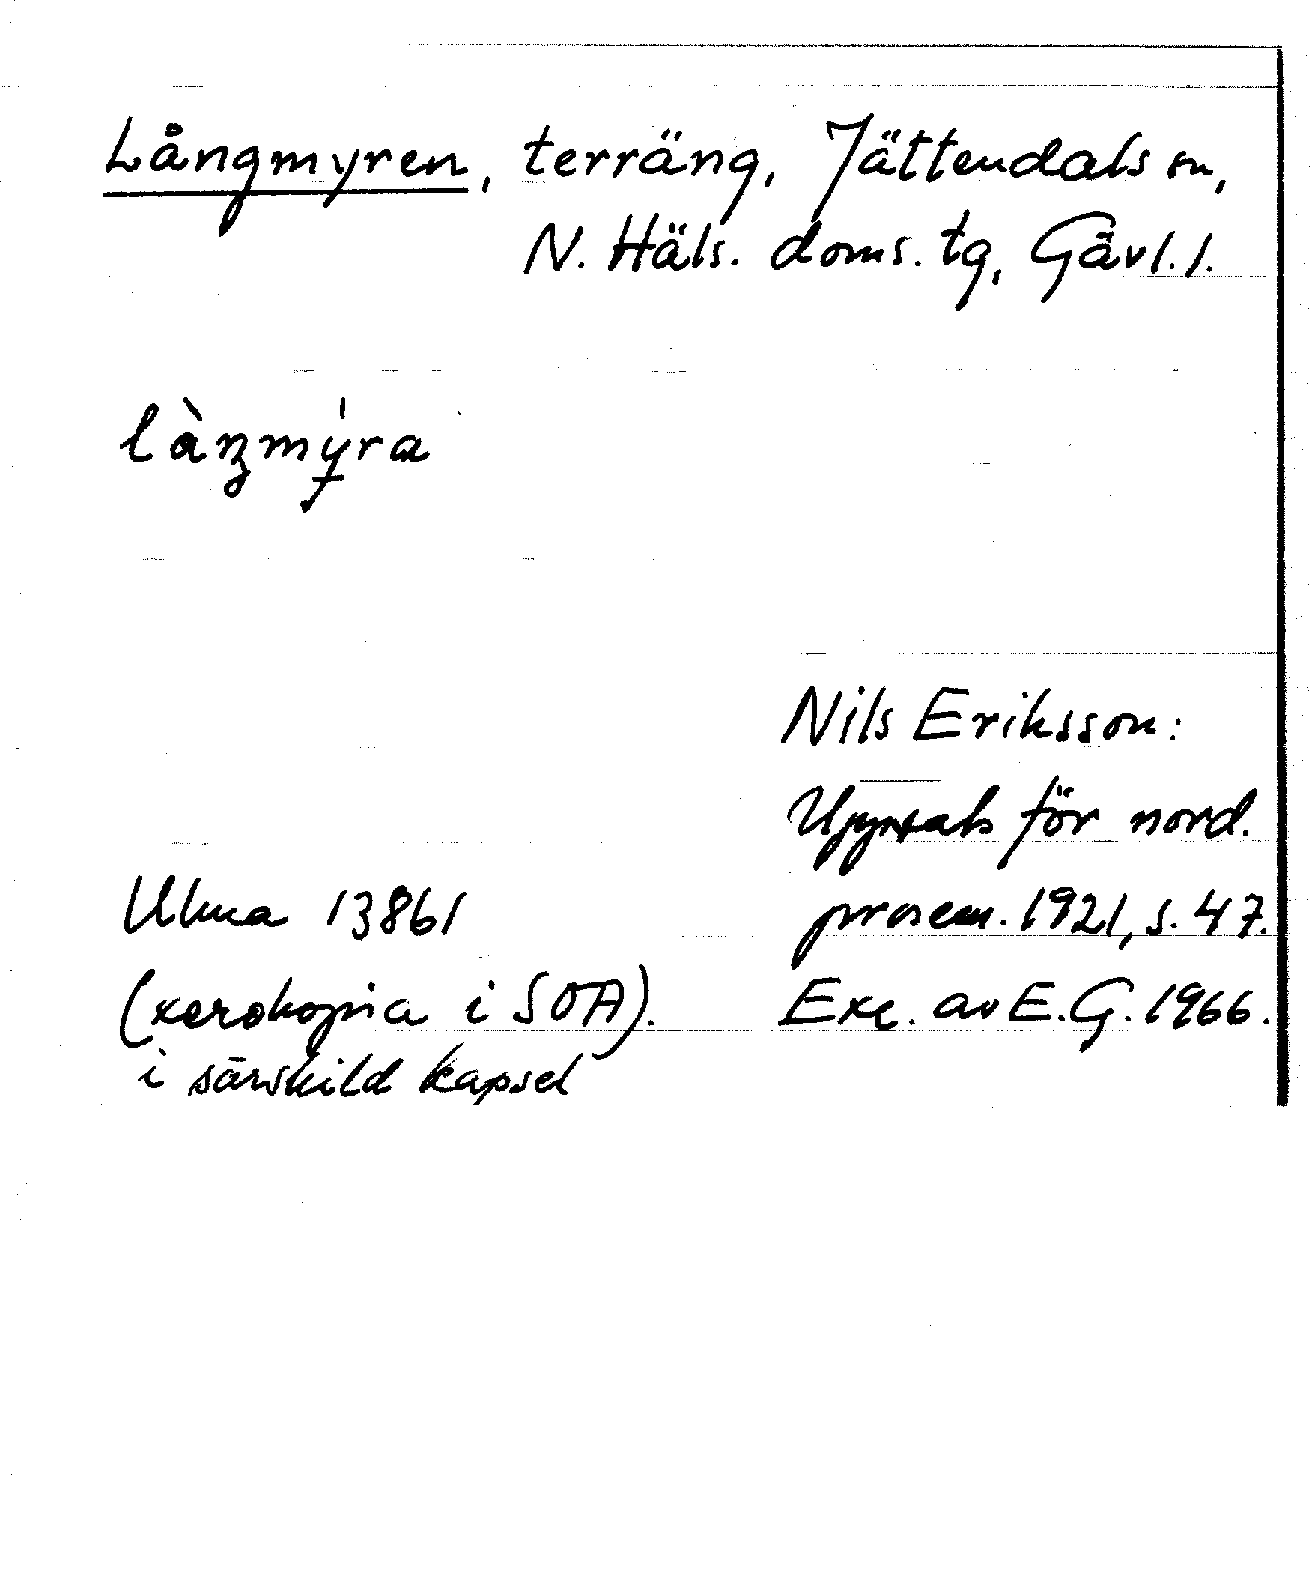 Långmyren, terräng, Jättendals sn,
N. Häls. doms. tg, Gävl. l.
làŋmy̍ra
Nils Eriksson:
Uppsats för nord.
prosem. 1921, s. 47.
Ulma 13861
(xerokopia i SOA).
Exc. av E.G. 1966.
i särskild kapsel